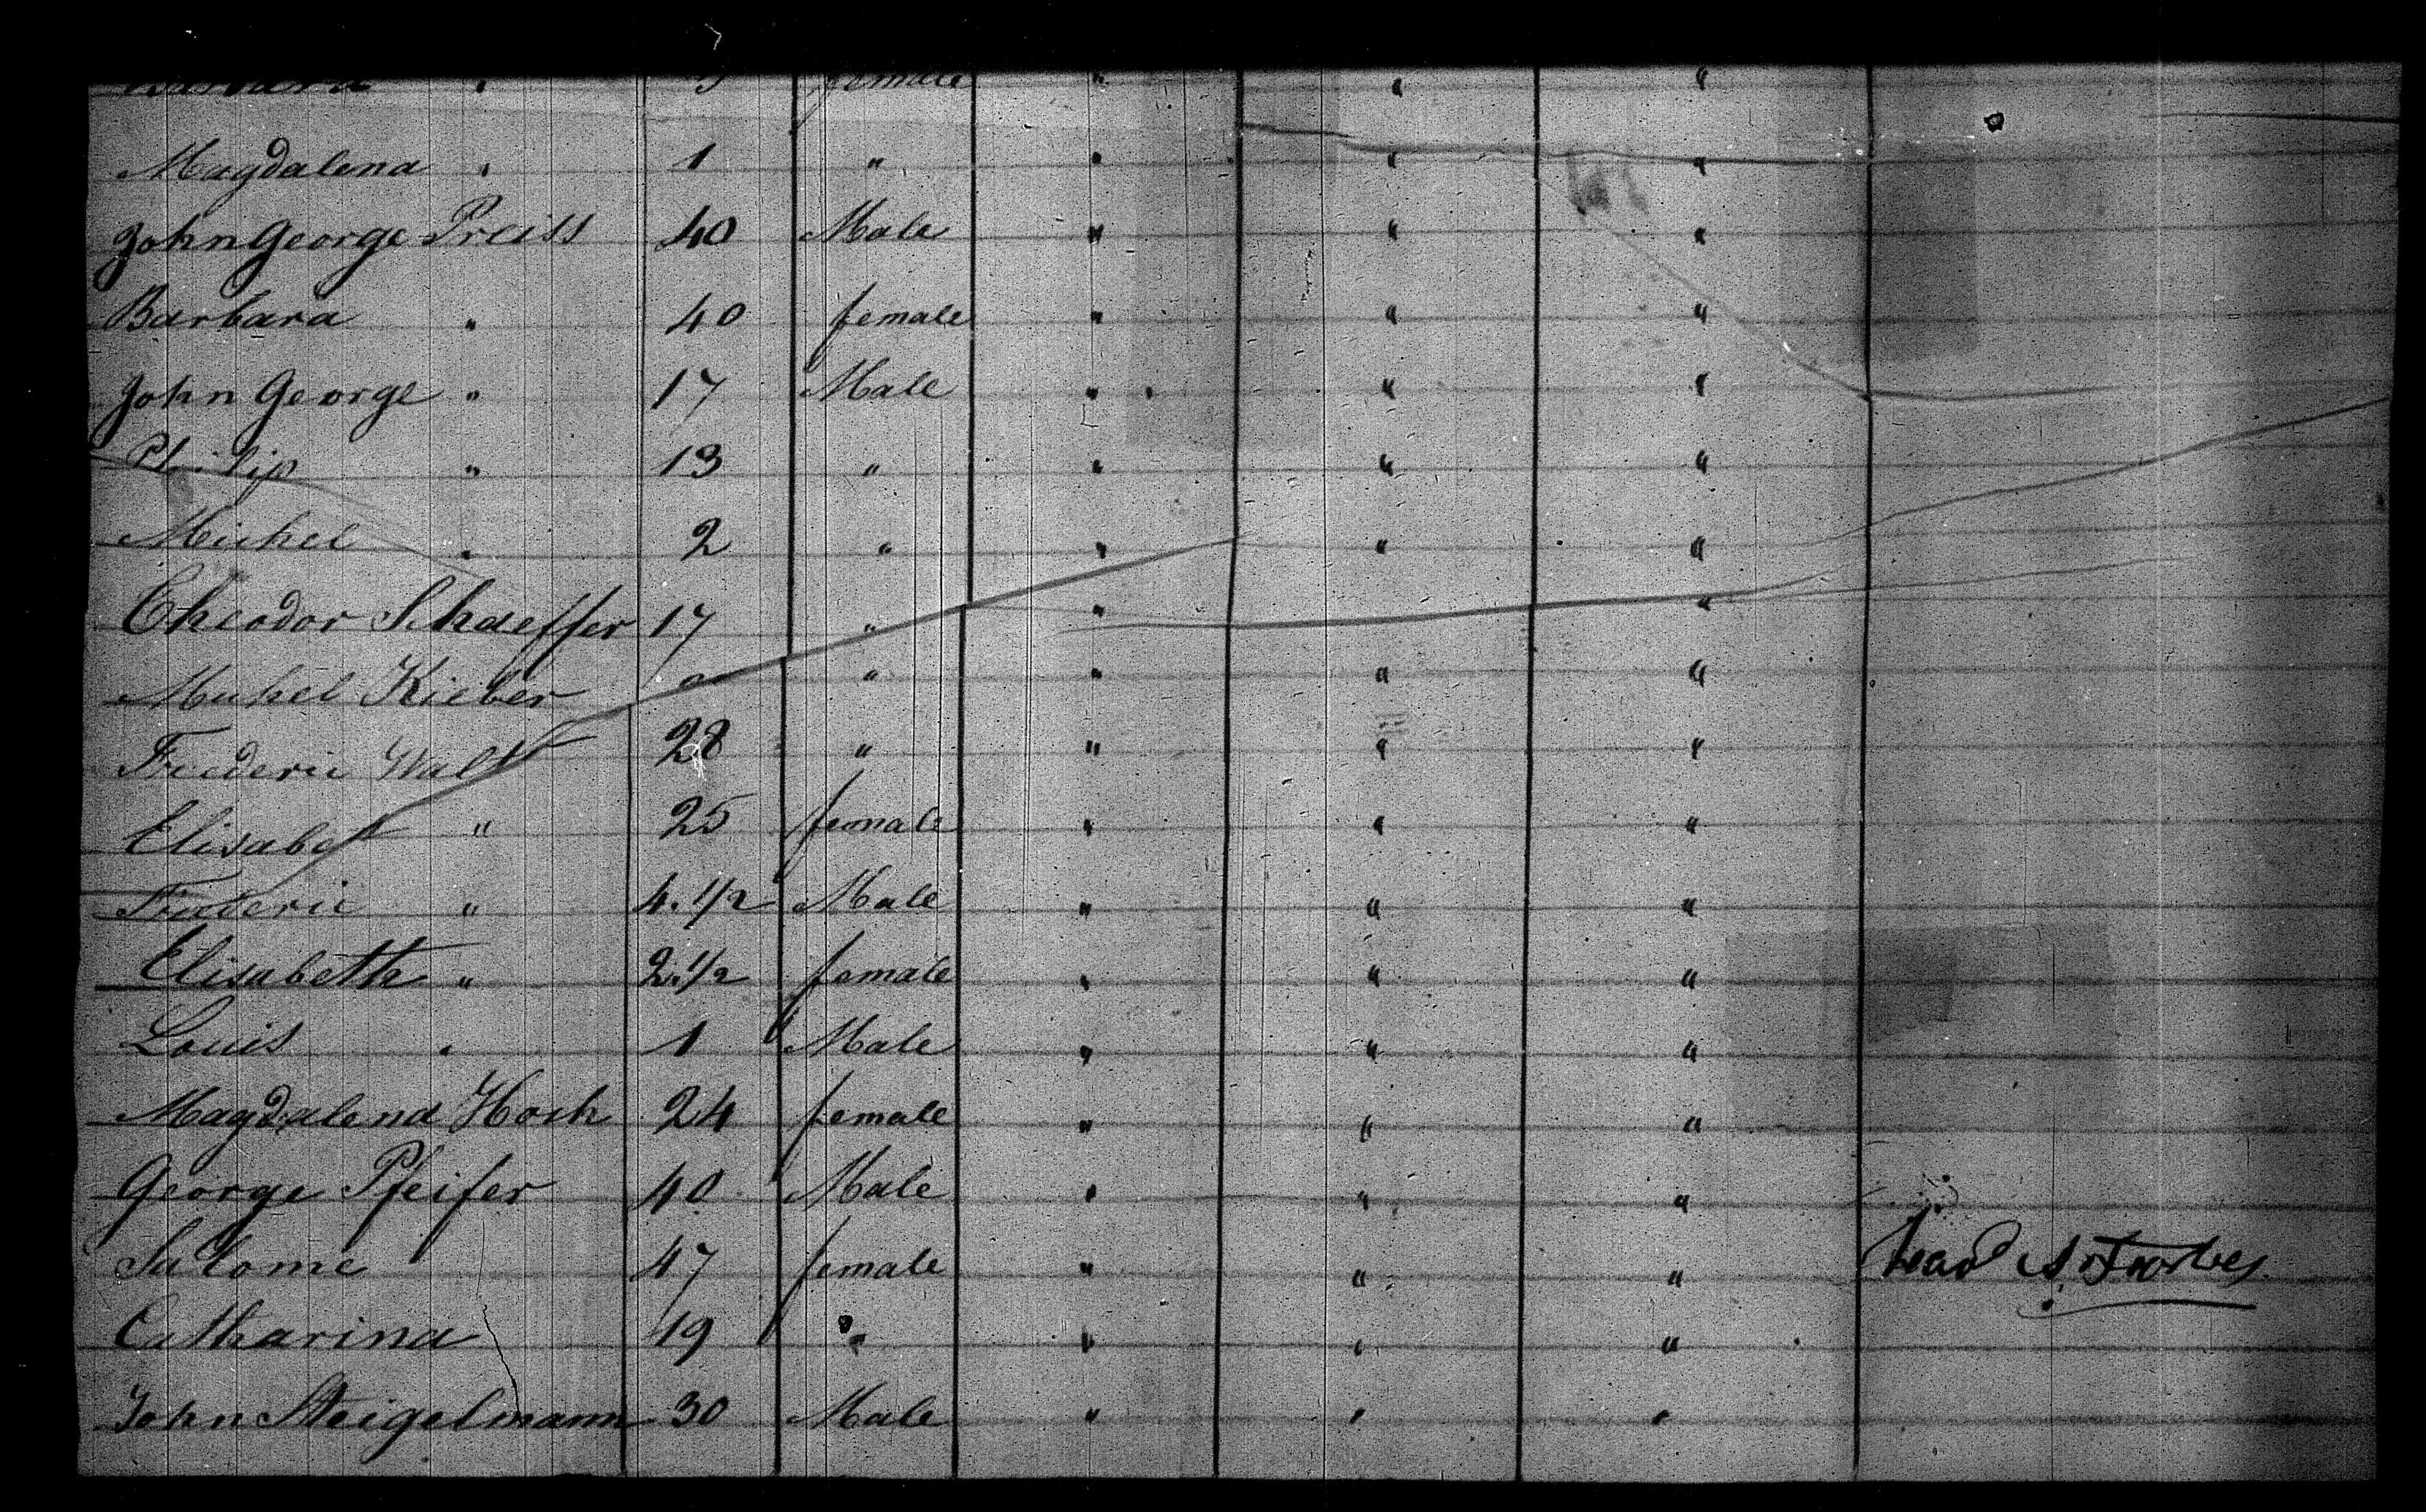 female " " "
Magdalena " 1 " " " "
John George Preiss 40 Male " " "
Barbara " 40 female " " "
John George " 17 Male " " "
Philip " 13 " " " "
Michel " 2 " " " "
Theodor Schaeffer 17 " " "
Michel Kieber " " " "
Frederic Walt 28 " " " "
Elisabet " 25 female " " "
Frederic " 4.1/2 Male " " "
Elisabeth " 2.1/2 female " " "
Louis " 1 Male " " "
Magdalena Hosch 24 female " " "
George Pfeifer 40 Male " " "
Salome 47 female " " "
Catharina 19 " " " "
John Steigelmann 30 Male " " "